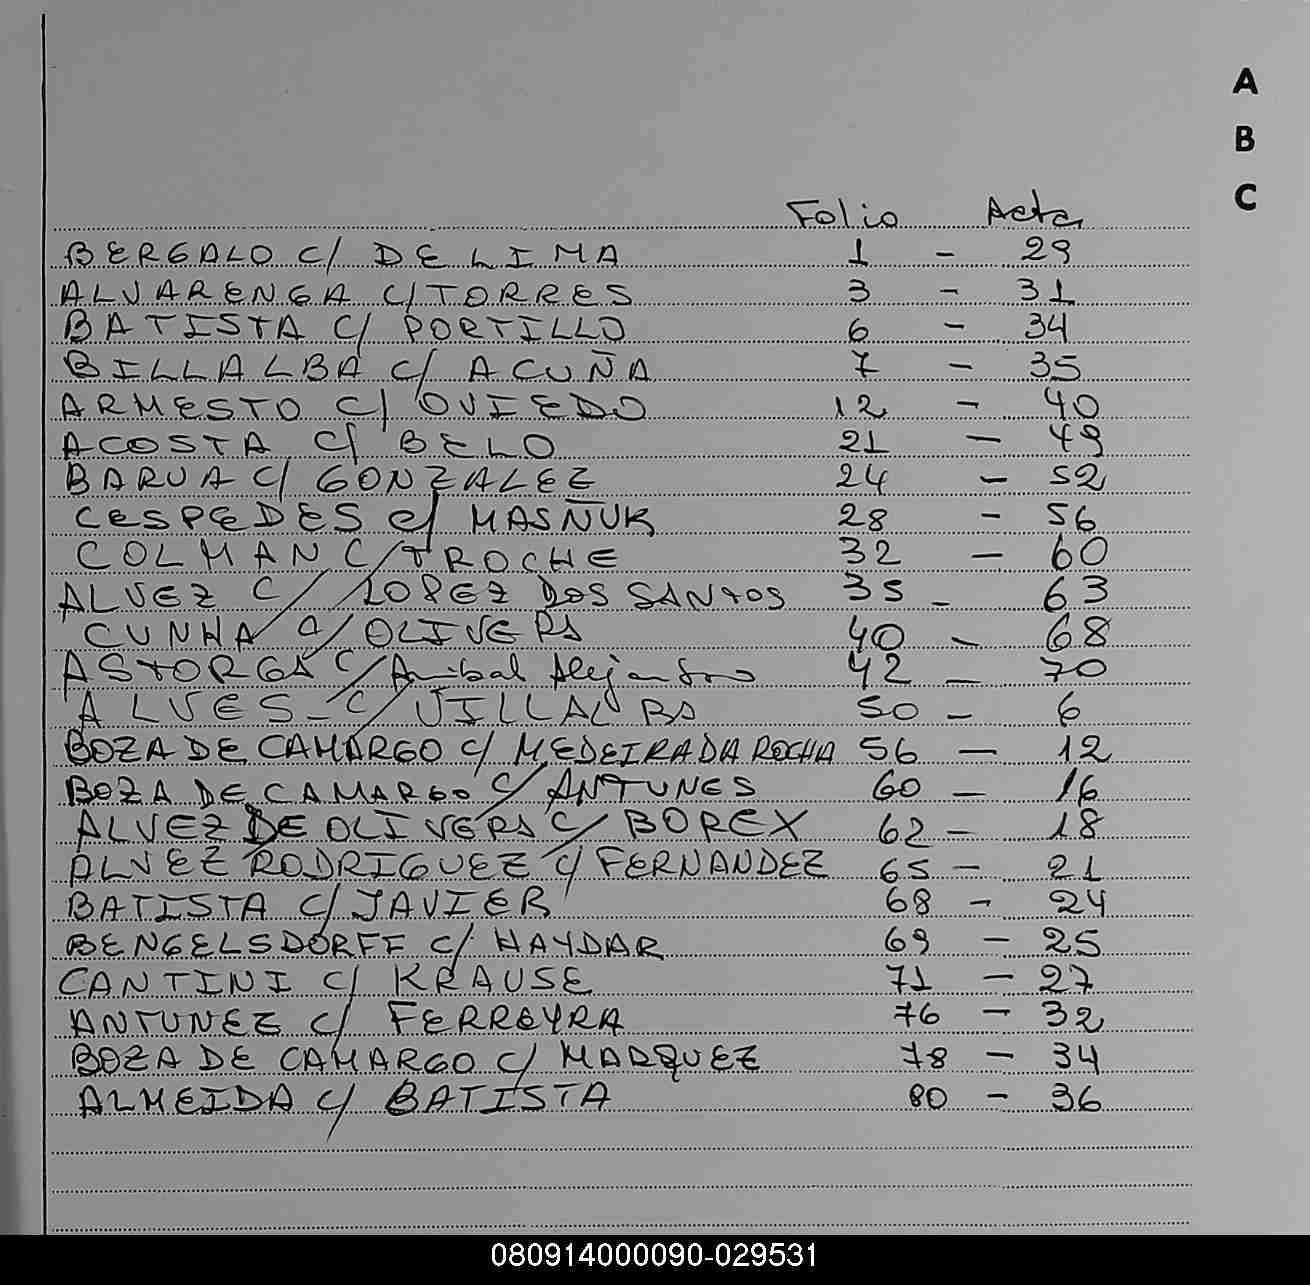 A
B
C
Folio Acta
BERGALO C/ DE LIMA 1 - 29
ALVARENGA C/ TORRES 3 - 31
BATISTA C/ PORTILLO 6 - 34
BILLALBA C/ ACUÑA 7 - 35
ARMESTO C/ OVIEDO 12 - 40
ACOSTA C/ BELO 21 - 49
BARUA C/ GONZALEZ 24 - 52
CESPEDES C/ MASÑUK 28 - 56
COLMAN C/ TROCHE 32 - 60
ALVEZ C/ LOPEZ DOS SANTOS 35 - 63
CUNHA C/ OLIVERA 40 - 68
ASTORGA C/ Anibal Alejandro 42 - 70
ALVES - C/ VILLALBA 50 - 6
BOZA DE CAMARGO C/ MEDEIRA DA ROCHA 56 - 12
BOZA DE CAMARGO C/ ANTUNES 60 - 16
ALVEZ DE OLIVERA C/ BOREX 62 - 18
ALVEZ RODRIGUEZ C/ FERNANDEZ 65 - 21
BATISTA C/ JAVIER 68 - 24
BENGELSDORFF C/ HAYDAR 69 - 25
CANTINI C/ KRAUSE 71 - 27
ANTUNEZ C/ FERREYRA 76 - 32
BOZA DE CAMARGO C/ MARQUEZ 78 - 34
ALMEIDA C/ BATISTA 80 - 36
080914000090-029531